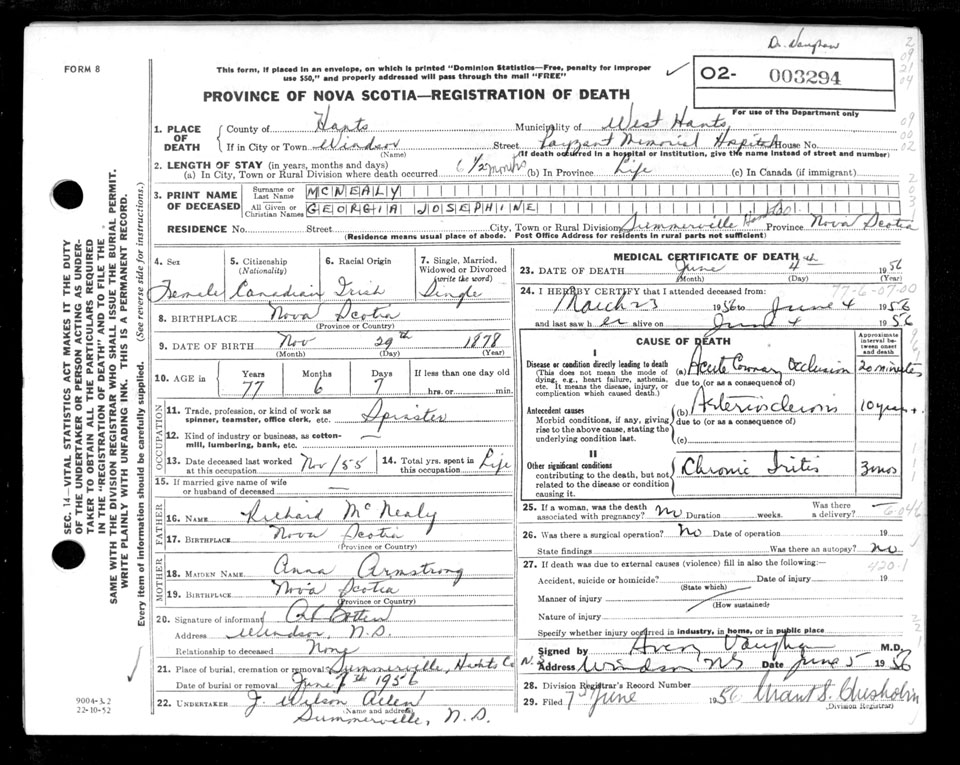 Dr. Vaughan
FORM 8
This form, if placed in an envelope, on which is printed "Dominion Statistics—Free, penalty for improper
use $50," and properly addressed will pass through the mail "FREE"
02- 003294
PROVINCE OF NOVA SCOTIA—REGISTRATION OF DEATH
For use of the Department only
1. PLACE OF DEATH
County of Hants Municipality of West Hants
If in City or Town Windsor Street Payzant Memorial Hospital House No.
(Name) (If death occurred in a hospital or institution, give the name instead of street and number)
2. LENGTH OF STAY (in years, months and days)
(a) In City, Town or Rural Division where death occurred 6 1/2 months (b) In Province Life (c) In Canada (if immigrant)
3. PRINT NAME OF DECEASED
Surname or Last Name MCNEALY
All Given or Christian Names GEORGIA JOSEPHINE
RESIDENCE No. Street City, Town or Rural Division Summerville Hants Co. Province Nova Scotia
(Residence means usual place of abode. Post Office Address for residents in rural parts not sufficient)
4. Sex 5. Citizenship (Nationality) 6. Racial Origin 7. Single, Married, Widowed or Divorced (write the word)
Female Canadian Irish Single
8. BIRTHPLACE Nova Scotia
(Province or Country)
9. DATE OF BIRTH Nov 29th 1878
(Month) (Day) (Year)
10. AGE in Years Months Days If less than one day old
77 6 7 hrs. or min.
OCCUPATION
11. Trade, profession, or kind of work as
spinner, teamster, office clerk, etc. Spinster
12. Kind of industry or business, as cotton-
mill, lumbering, bank, etc. —
13. Date deceased last worked at this occupation Nov/55 14. Total yrs. spent in this occupation Life
15. If married give name of wife
or husband of deceased —
FATHER
16. NAME Richard McNealy
17. BIRTHPLACE Nova Scotia
(Province or Country)
MOTHER
18. MAIDEN NAME Anna Armstrong
19. BIRTHPLACE Nova Scotia
(Province or Country)
20. Signature of informant
Address Windsor, N.S.
Relationship to deceased None
21. Place of burial, cremation or removal Summerville, Hants Co N.S.
Date of burial or removal June 7th 1956
22. UNDERTAKER J. Wilson Allen
(Name and address)
Summerville, N.S.
MEDICAL CERTIFICATE OF DEATH
23. DATE OF DEATH June 4th 1956
(Month) (Day) (Year)
24. I HEREBY CERTIFY that I attended deceased from:
77-6-07-00
March 23 1956 to June 4 1956
and last saw her alive on June 4 1956
CAUSE OF DEATH
Approximate interval between onset and death
I
Disease or condition directly leading to death
(This does not mean the mode of dying, e.g., heart failure, asthenia, etc. It means the disease, injury, or complication which caused death.)
(a) Acute Coronary Occlusion 20 minutes
due to (or as a consequence of)
Antecedent causes
Morbid conditions, if any, giving rise to the above cause, stating the underlying condition last.
(b) Arteriosclerosis 10 years +
due to (or as a consequence of)
(c)
II
Other significant conditions
contributing to the death, but not related to the disease or condition causing it.
Chronic Iritis 3 mos
25. If a woman, was the death
associated with pregnancy? No Duration weeks. Was there a delivery?
26. Was there a surgical operation? No Date of operation 19
State findings Was there an autopsy? No
27. If death was due to external causes (violence) fill in also the following:—
420-1
Accident, suicide or homicide? Date of injury 19
(State which)
Manner of injury
(How sustained)
Nature of injury
Specify whether injury occurred in industry, in home, or in public place
Signed by Avery Vaughan M.D.
Address Windsor NS Date June 5 1956
28. Division Registrar's Record Number
29. Filed 7 June 1956 Grant S. Chisholm
(Division Registrar)
SEC. 14—VITAL STATISTICS ACT MAKES IT THE DUTY
OF THE UNDERTAKER OR PERSON ACTING AS UNDER-
TAKER TO OBTAIN ALL THE PARTICULARS REQUIRED
IN THE "REGISTRATION OF DEATH" AND TO FILE THE
SAME WITH THE DIVISION REGISTRAR WHO SHALL ISSUE THE BURIAL PERMIT.
WRITE PLAINLY WITH UNFADING INK. THIS IS A PERMANENT RECORD.
Every item of information should be carefully supplied. (See reverse side for instructions.)
9004-3.2
22-10-52